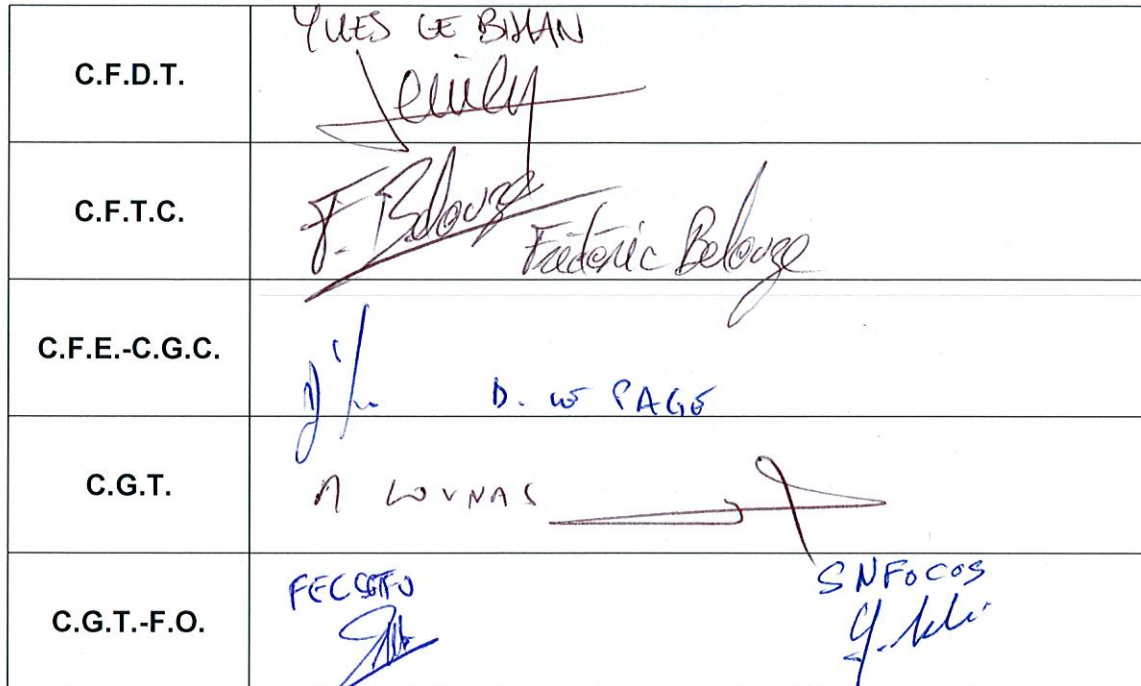 C.F.D.T.
YVES LE BIHAN
C.F.T.C.
F. Belouze
Frédéric Belouze
C.F.E.-C.G.C.
D. LE PAGE
C.G.T.
A LOUNAS
C.G.T.-F.O.
FEC CGT FO
SNFOCOS